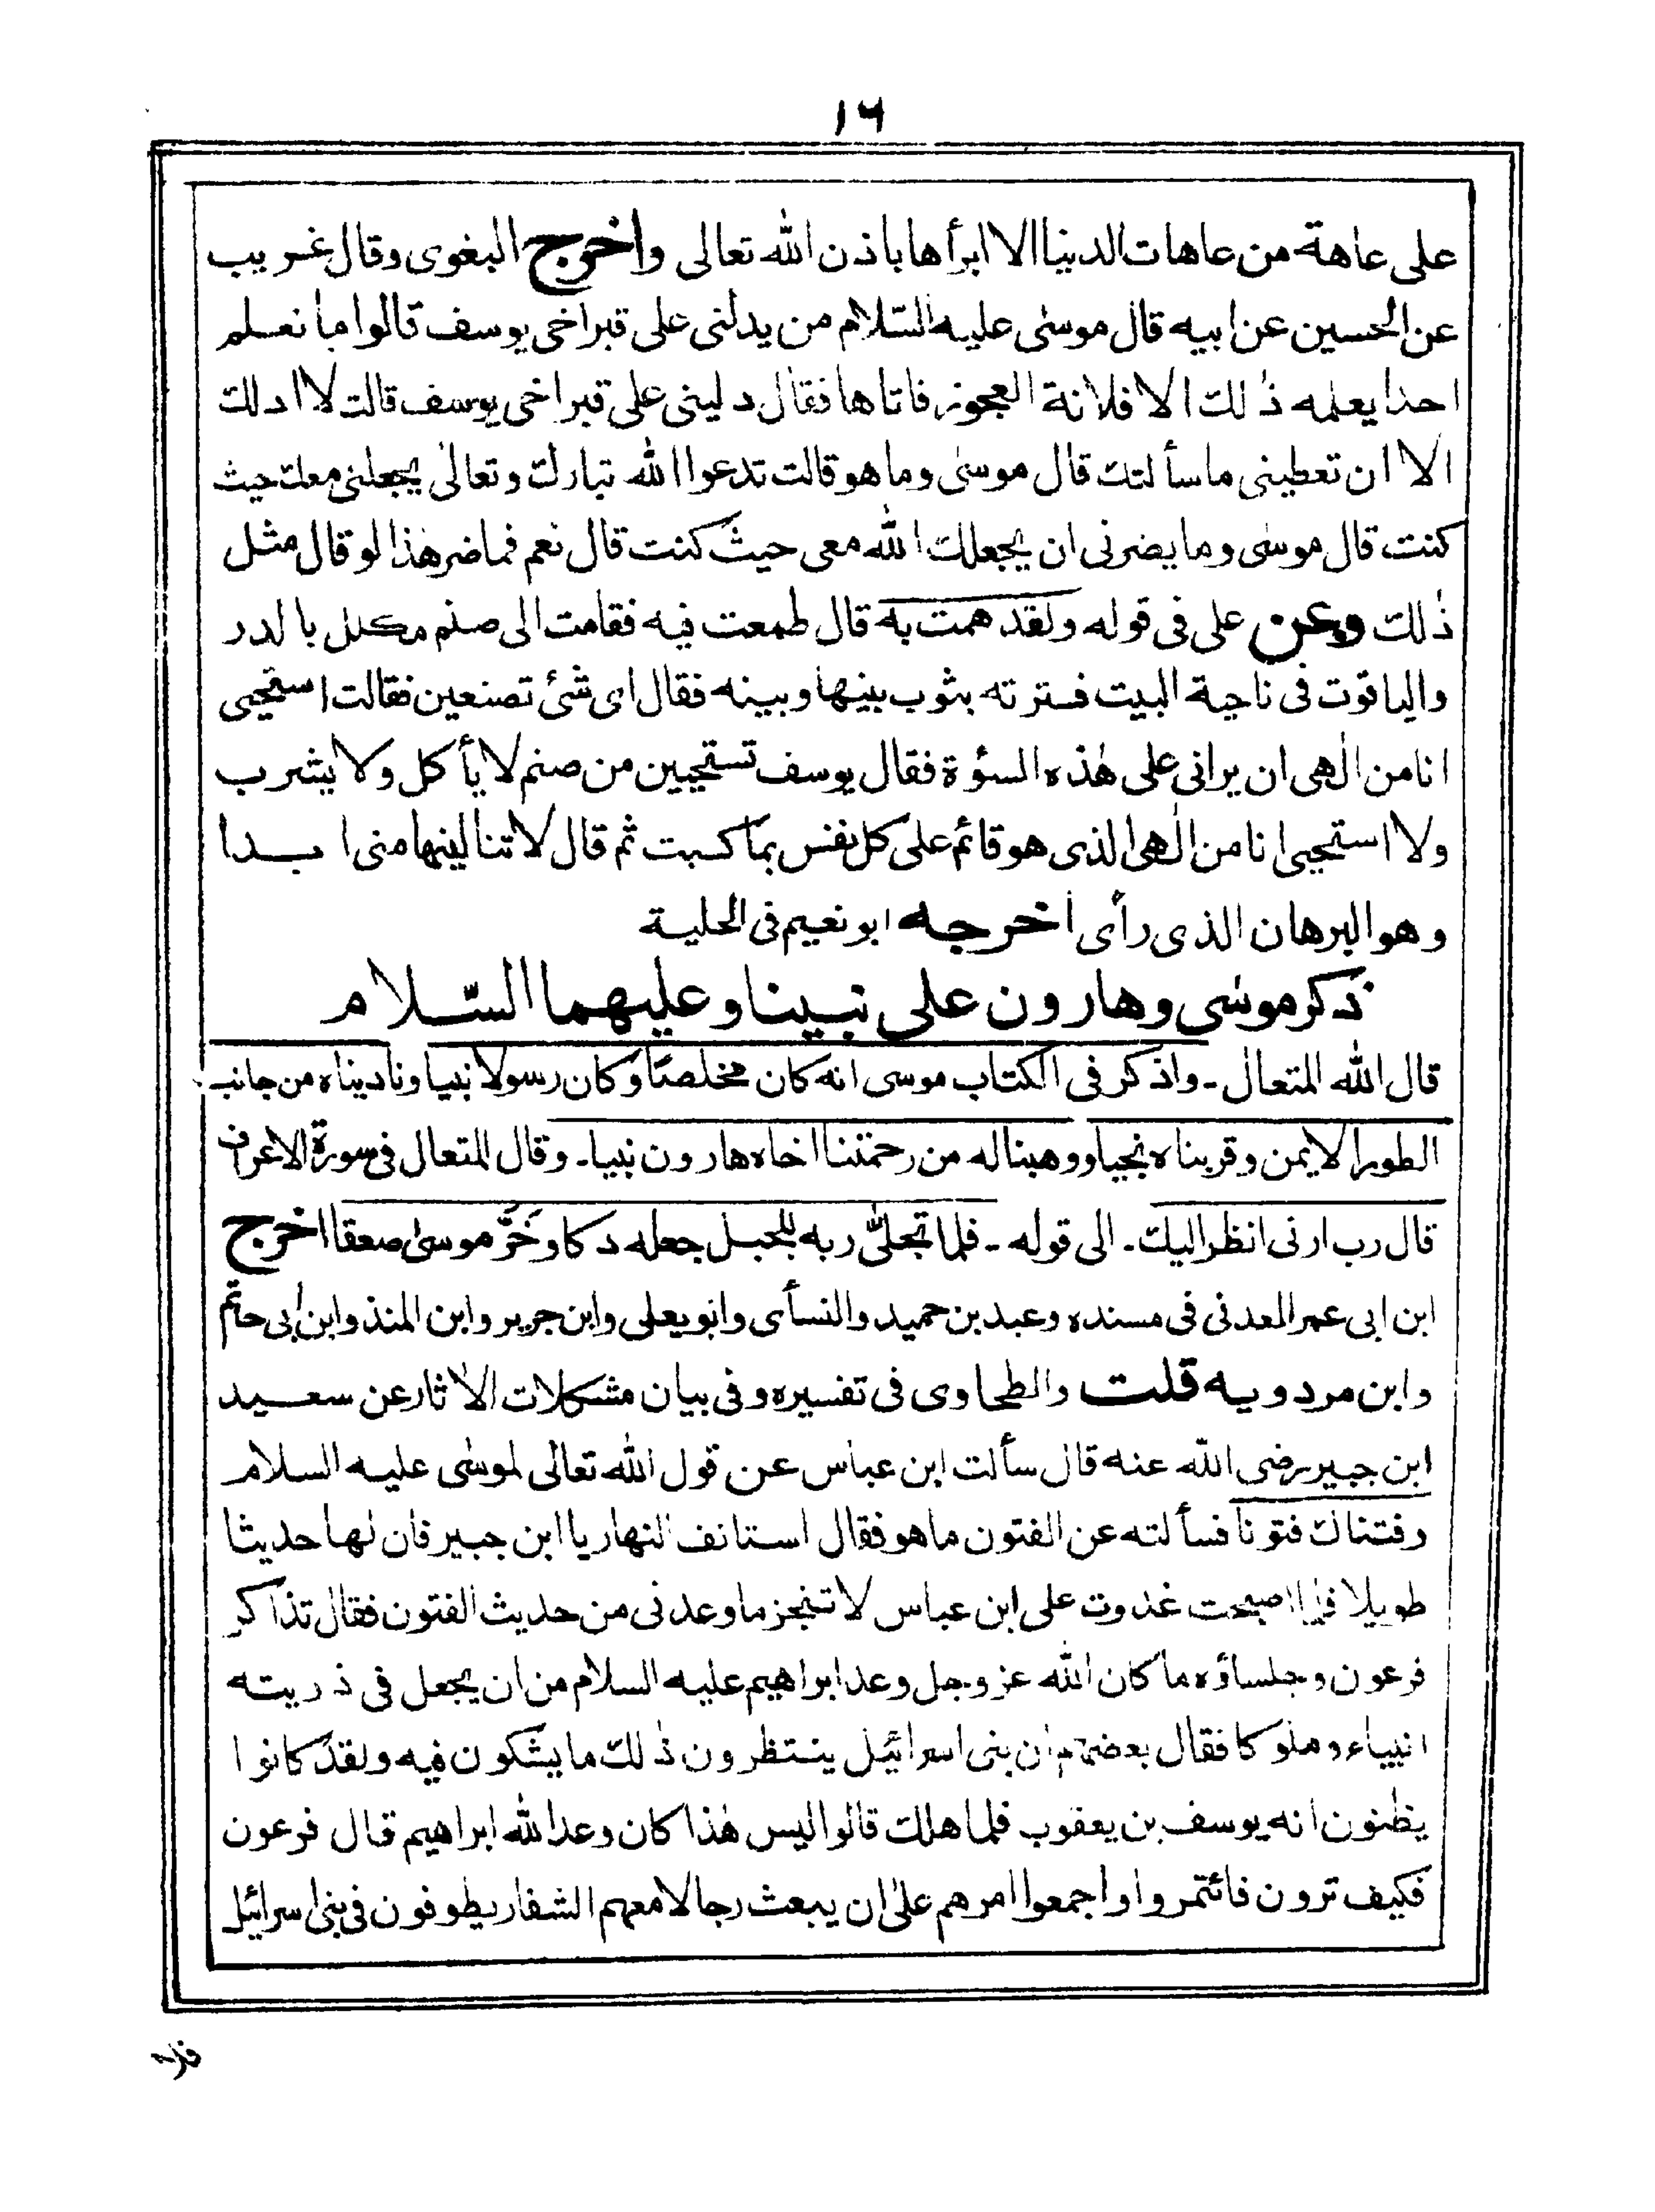 ١٦
على عاهة من عاهات الدنيا الا ابرأها باذن الله تعالى واخرج البغوى وقال غريب
عن الحسين عن ابيه قال موسى عليه السّلام من يدلنى على قبر اخى يوسف قالوا ما نعلم
احدا يعلمه ذٰلك الا فلانة العجوز فاتاها فقال دلينى على قبر اخى يوسف قالت لا ادلك
الا ان تعطينى ما سألتك قال موسىٰ وما هو قالت تدعوا الله تبارك وتعالىٰ يجعلنى معك حيث
كنت قال موسىٰ وما يضرنى ان يجعلك الله معى حيث كنت قال نعم فما ضر هٰذا لو قال مثل
ذٰلك وعن على فى قوله ولقد همت به قال طمعت فيه فقامت الى صنم مكلل بالدر
والياقوت فى ناحية البيت فسترته بثوب بينها وبينه فقال اى شئ تصنعين فقالت استحيى
انا من الٰهى ان يرانى على هٰذه السؤة فقال يوسف تستحيين من صنم لا يأكل ولا يشرب
ولا استحيى انا من الٰهى الذى هو قائم على كل نفس بما كسبت ثم قال لا تنالينها منى ابدا
وهو البرهان الذى رأى اخرجه ابو نعيم فى الحلية
ذكر موسى وهارون على نبينا وعليهما السّلام
قال الله المتعال ـ واذكر فى الكتاب موسى انه كان مخلصًا وكان رسولا نبيا وناديناه من جانب
الطور الايمن وقربناه نجيا ووهبنا له من رحمتنا اخاه هارون نبيا ـ وقال المتعال فى سورة الاعراف
قال رب ارنى انظر اليك ـ الى قوله ـ فلما تجلىّٰ ربه للجبل جعله دكا وخَرَّ موسىٰ صعقا اخرج
ابن ابى عمر المعدنى فى مسنده وعبد بن حميد والنسأى وابو يعلى وابن جرير وابن المنذ وابن ابى حاتم
وابن مردويه قلت والطحاوى فى تفسيره وفى بيان مشكلات الاٰثار عن سعيد
ابن جبير رضى الله عنه قال سألت ابن عباس عن قول الله تعالى لموسٰى عليه السلام
وفتناك فتونا فسألته عن الفتون ما هو فقال استانف النهار يا ابن جبير فان لها حديثا
طويلا فلما اصبحت غدوت على ابن عباس لا تنجز ما وعدنى من حديث الفتون فقال تذاكر
فرعون وجلساؤه ما كان الله عز وجل وعد ابراهيم عليه السلام من ان يجعل فى ذريته
انبياء وملوكا فقال بعضهم ان بنى اسرائيل ينتظرون ذٰلك ما يشكون فيه ولقد كانوا
يظنون انه يوسف بن يعقوب فلما هلك قالوا ليس هٰذا كان وعد الله ابراهيم قال فرعون
فكيف ترون فائتمروا واجمعوا امرهم علىٰ ان يبعث رجالا معهم الشفار يطوفون فى بنى اسرائيل